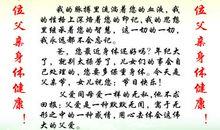 位父亲身体健康！
我的脉搏里流淌着您的血液，我
的性格上深烙着您的印记，我的思想
里继承着您的智慧，这一切的一切，
我永远都不会忘记。
爸，您最近身体还好吗？年纪大
了，就别太操劳了，儿女们的事会自
己处理的，您要多保重身体。今天是
父亲节，女儿祝您，节日快乐！
父爱同母爱一样的无私，他不求
回报；父爱是一种默默无闻，寓于无
形之中的一种感情，用心去体会这伟
大的父爱。
位父亲身体健康！